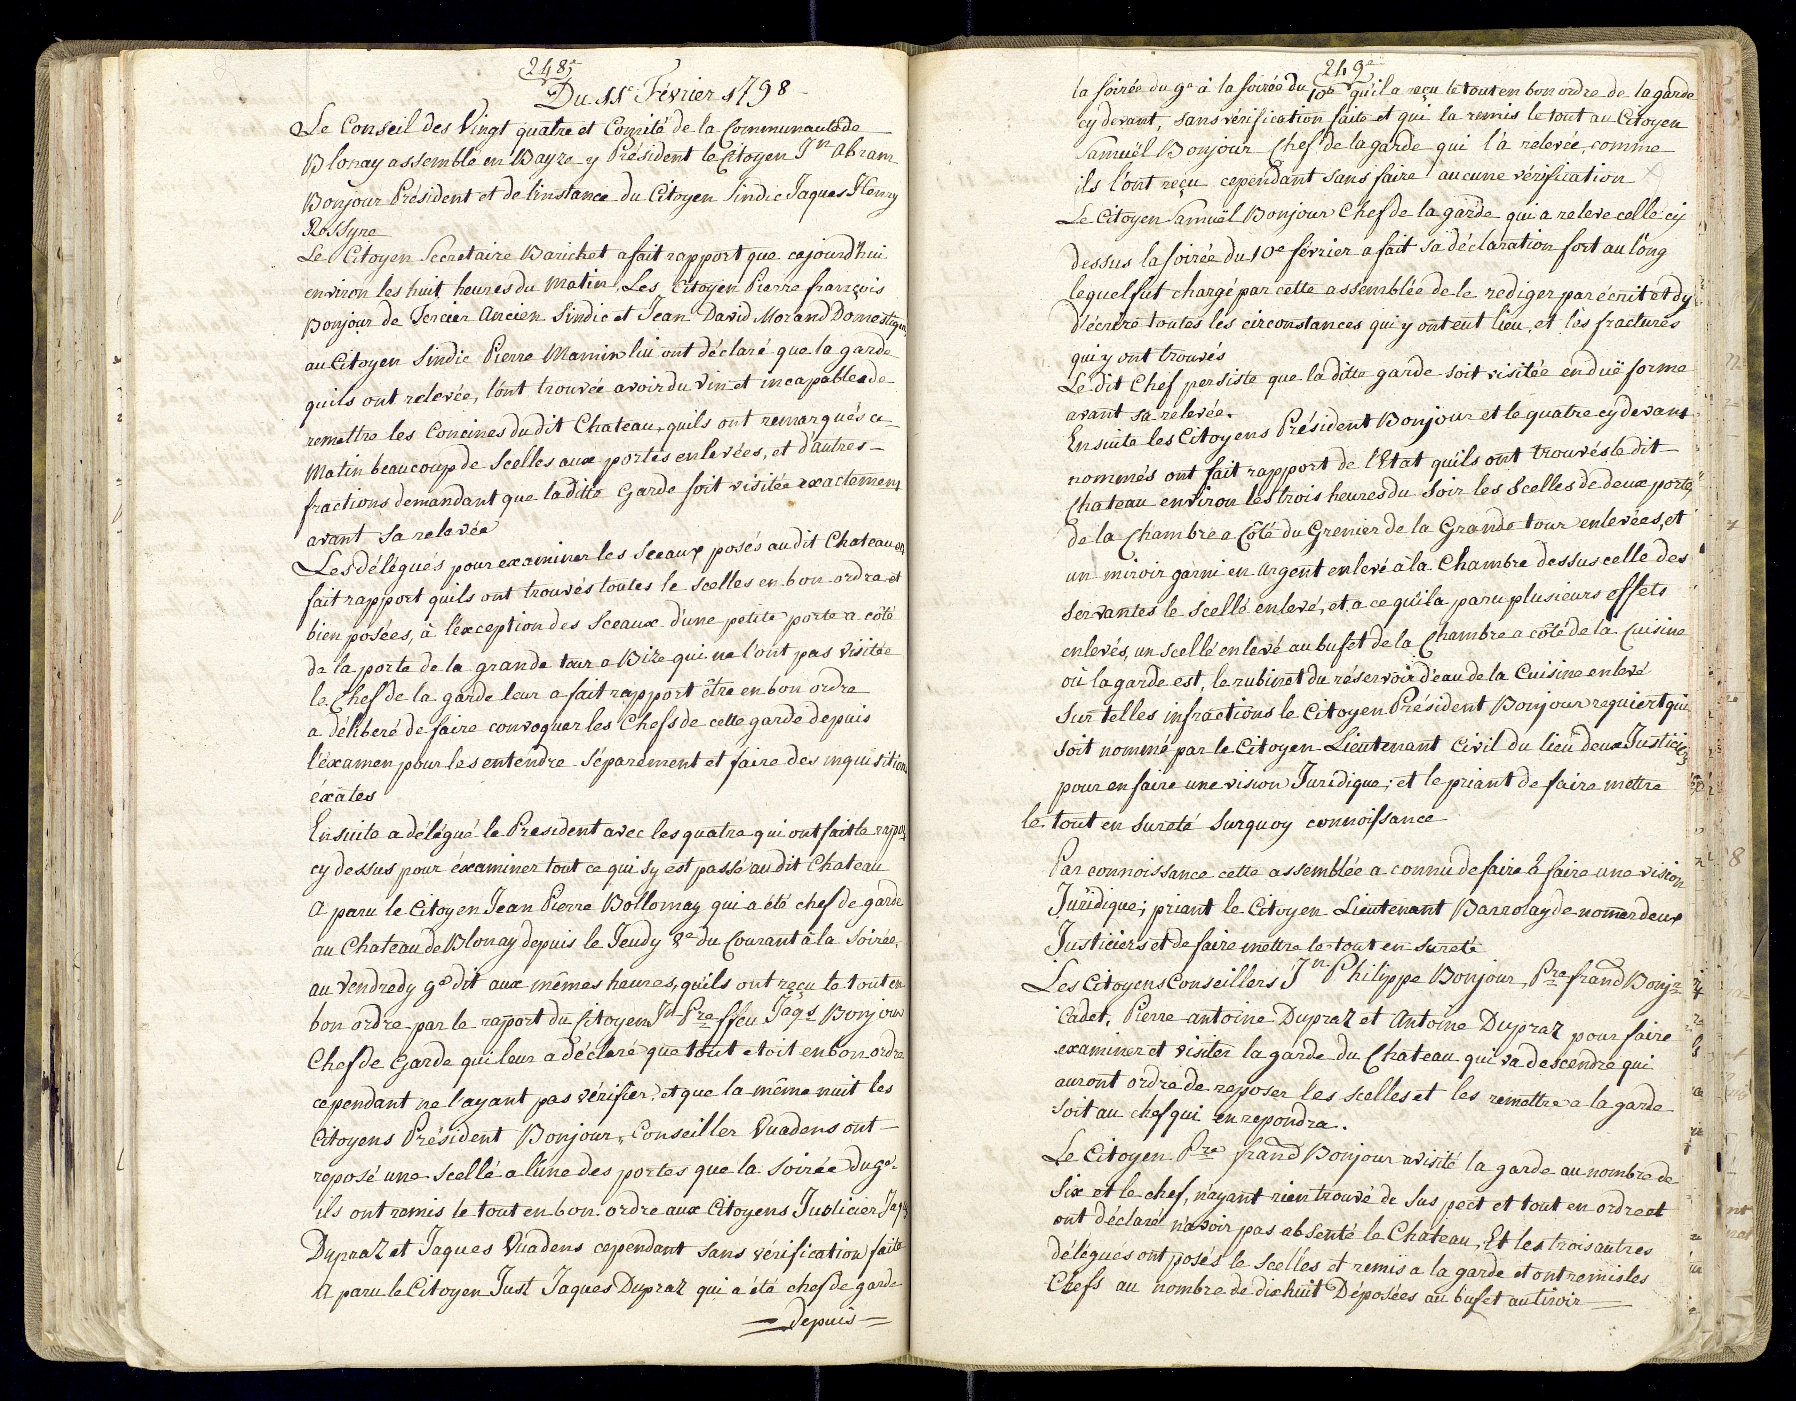 248e
Du 11e Février 1798
Le Conseil des Vingt quatre et Comité de la Communauté de
Blonay assemblé en Bayze y Président le Citoyen Jn Abram
Bonjour Président et de l'instance du Citoyen Sindic Jaques Henry
Rossyre
Le Citoyen Secretaire Barichet a fait rapport que cejourd'hui
environ les huit heures du Matin, Les Citoyen Pierre françois
Bonjour de Tercier Ancien Sindic et Jean David Morand Domestique
au Citoyen Sindic Pierre Mamin lui ont déclaré que la garde
quils ont relevée, l'ont trouvée avoir du vin et incapable de
remettre les Concines du dit Chateau, quils ont remarqués ce
Matin beaucoup de Scelles aux portes enlevées, et d'autres
fractions demandant que la ditte Garde soit visitée exactement
avant sa relevée
Les délégués pour examiner les Sceaux posés au dit Chateau on
fait rapport quils ont trouvés toutes le scelles en bon ordre et
bien posées, à l'exception des Sceaux d'une petite porte a côté
de la porte de la grande tour a Bize qui ne l'ont pas visitée
le Chef de la garde leur a fait rapport être en bon ordre
a délibéré de faire convoquer les Chefs de cette garde depuis
l'éxamen pour les entendre Séparément et faire des inquisitions
éxâtes
Ensuite a délégué le President avec les quatre qui ont fait le rappor
cy dessus pour éxaminer tout ce qui sy est passé au dit Chateau
A paru le Citoyen Jean Pierre Bollomay qui a été chef de garde
au Chateau de Blonay depuis le Jeudy 8e du Courant à la Soirée,
au Vendredy 9e dit aux mêmes heures, qu'ils ont reçu le tout en
bon ordre par le rapport du Citoyen Jd Pre ffeu Jaqs Bonjour
Chef de Garde qui leur a déclaré que tout etoit en bon ordre
cependant ne l'ayant pas vérifier, et que la même nuit les
Citoyens Président Bonjour, Conseiller Vuadens ont
reposé une Scellé a l'une des portes que la Soirée du 9e
ils ont remis le tout en bon ordre aux Citoyens Justicier Jaqs
Dupraz et Jaques Vuadens cependant sans vérification faite
A paru le Citoyen Just Jaques Dupraz qui a été chef de garde
depuis
249e
la soirée du 9e à la soirée du 10e qu'il a reçu le tout en bon ordre de la garde
cy devant, sans vérification faite et qui la remis le tout au Citoyen
Samuël Bonjour Chef de la garde qui l'à relevée, comme
ils l'ont reçu cependant sans faire aucune vérification
Le Citoyen Samuël Bonjour Chef de la garde qui a releve celle cy
dessus la soirée du 10e février a fait sa déclaration fort au long
lequel fut chargé par cette assemblée de le rediger par écrit et dy
d'écrire toutes les circonstances qui y ont eut lieu, et les fractures
qui y ont trouvés
Le dit Chef persiste que la ditte garde soit visitée en duë forme
avant sa rélevée.
Ensuite les Citoyens Président Bonjour et le quatre cy devant
nommés ont fait rapport de l'Etat qu'ils ont trouvés le dit
Chateau environ les trois heures du Soir les Scelles de deux porte,
de la Chambre a côté du Grenier de la Grande tour enlevées, et
un miroir garni en argent enlevé à la Chambre dessus celle des
Servantes le Scellé enlevé, et a ce qu'il a paru plusieurs effets
enlevés, un scellé enlevé au bufet de la Chambre a côté de la Cuisine
où la garde est, le rubinet du réservoir d'eau de la Cuisine enlevé
Sur telles infractions le Citoyen Président Bonjour requiert qui
soit nommé par le Citoyen Lieutenant Civil du lieu deux Justiciers
pour en faire une vision Juridique; et le priant de faire mettre
le tout en Sureté Surquoy connoissance
Par connoissance cette assemblée a connu de faire à faire une vision
Juridique; priant le Citoyen Lieutenant Barrolay de nomer deux
Justiciers et de faire mettre le tout en Sureté
Les Citoyens Conseillers Jn Philippe Bonjour, Pre frand Bonjr
Cadet, Pierre antoine Dupraz et Antoine Dupraz pour faire
examiner et visiter la garde du Chateau qui va descendre qui
auront ordre de reposer les scelles et les remettre a la garde
soit au chef qui en repondra.
Le Citoyen Pre frand Bonjour a visité la garde au nombre de
Six et le chef, n'ayant rien trouvé de suspect et tout en ordre et
ont déclaré n'avoir pas absenté le Chateau, Et les trois autres
délégués ont posés le scellés et remis a la garde et ont remis les
Chefs au nombre de dixhuit Déposées au bufet au tiroir